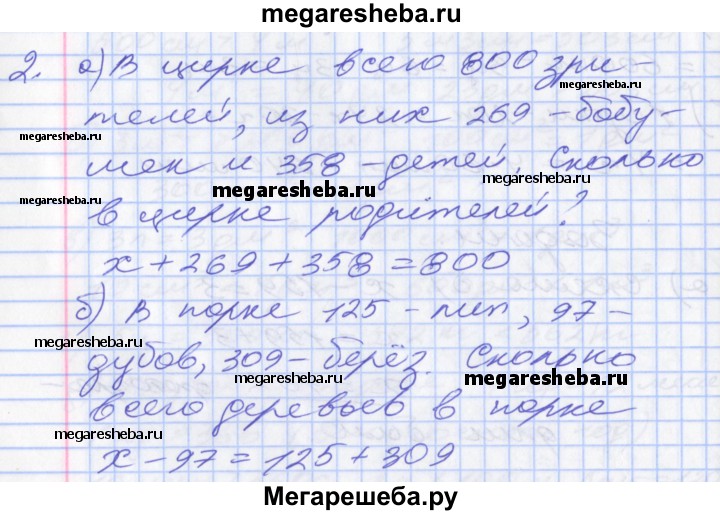 megaresheba.ru
2. а) В цирке всего 800 зри-
телей, из них 269 - бабу-
megaresheba.ru
megaresheba.ru
шек и 358 - детей. Сколько
megaresheba.ru
megaresheba.ru
megaresheba.ru
в цирке родителей?
х + 269 + 358 = 800
б) В парке 125 - лип, 97 -
megaresheba.ru
дубов, 309 - берёз. Сколько
megaresheba.ru
megaresheba.ru
всего деревьев в парке
megaresheba.ru
х - 97 = 125 + 309
Мегарешеба.ру